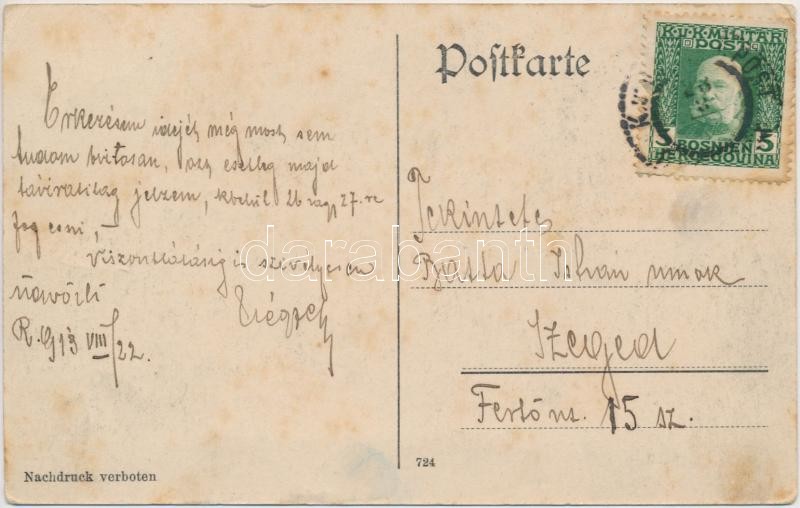 Postkarte
K.u.K. MILITÄR
POST
5 BOSNIEN 5
HERCEGOVINA
Érkezésem idejét még most sem
tudom biztosan, azt esetleg majd
táviratilag jelzem, körül 26 vagy 27.-re
fog esni, –
Viszontlátásig is szívélyesen
üdvözli
R. 913 VIII/22.
Tekintetes
Batta István urnak
Szeged
Fertő u. 15 sz.
Nachdruck verboten
724
darabanth